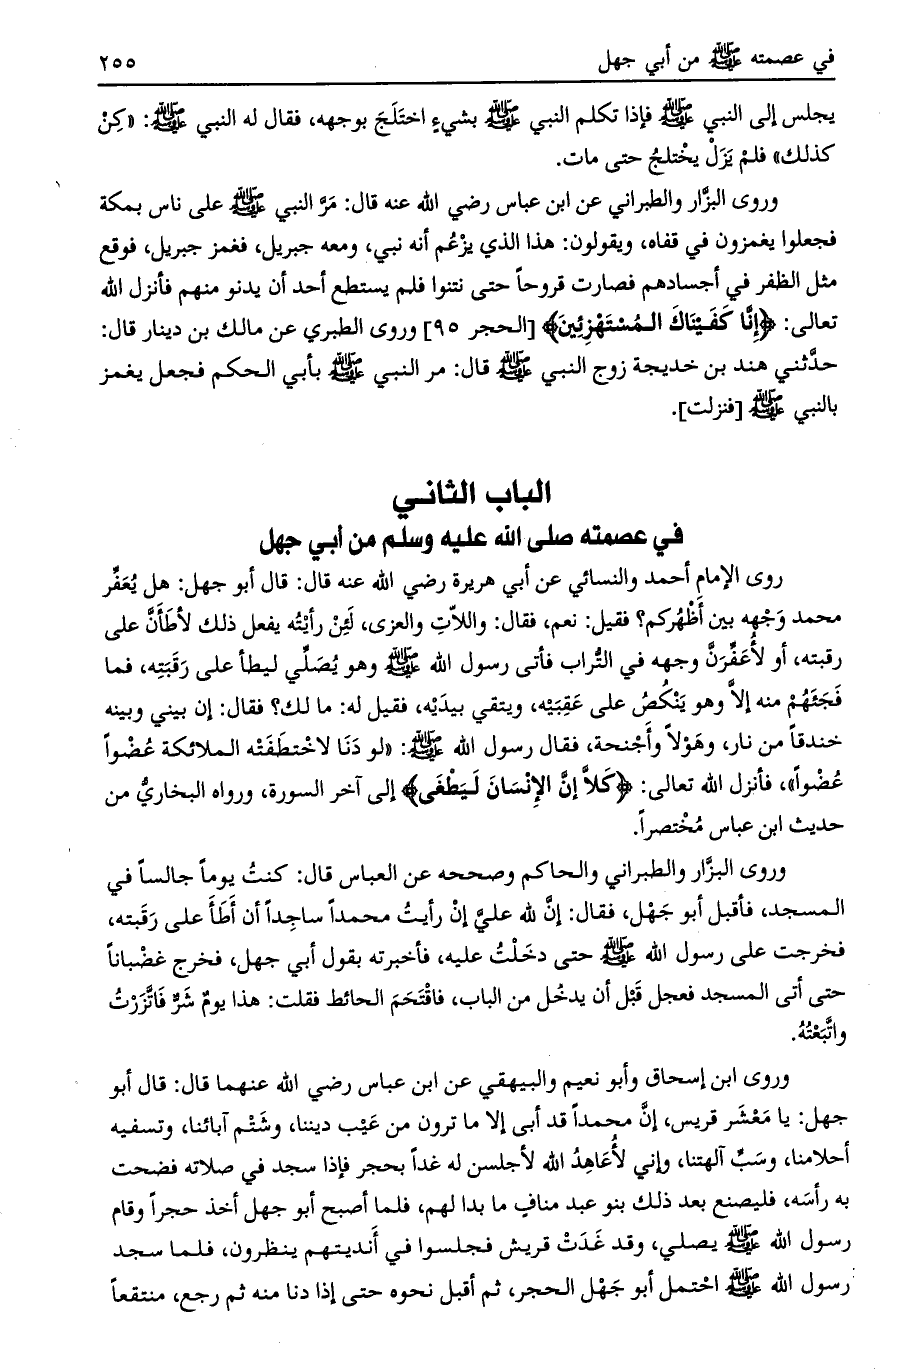 في عصمته ﷺ من أبي جهل ٢٥٥
يجلس إلى النبي ﷺ فإذا تكلم النبي ﷺ بشيءٍ اختَلَجَ بوجهه، فقال له النبي ﷺ: «كِنْ
كذلك» فلمْ يَزَلْ يخْتلجُ حتى مات.
وروى البزَّار والطبراني عن ابن عباس رضي الله عنه قال: مَرَّ النبي ﷺ على ناس بمكة
فجعلوا يغمزون في قفاه، ويقولون: هذا الذي يزْعُم أنه نبي، ومعه جبريل، فغمز جبريل، فوقع
مثل الظفر في أجسادهم فصارت قروحاً حتى نتنوا فلم يستطع أحد أن يدنو منهم فأنزل الله
تعالى: ﴿إِنَّا كَفَيْنَاكَ الـمُسْتَهْزِئِينَ﴾ [الـحجر ٩٥] وروى الطبري عن مالك بن دينار قال:
حدَّثني هند بن خديجة زوج النبي ﷺ قال: مر النبي ﷺ بأبي الـحكم فجعل يغمز
بالنبي ﷺ [فنزلت].
الباب الثاني
في عصمته صلى الله عليه وسلم من أبي جهل
روى الإمام أحمد والنسائي عن أبي هريرة رضي الله عنه قال: قال أبو جهل: هل يُعَفِّر
محمد وَجْهه بين أَظْهُركم؟ فقيل: نعم، فقال: واللاَّتِ والعزى، لَئِنْ رأيْتُه يفعل ذلك لأطَأَنَّ على
رقبته، أو لأُعَفِّرَنَّ وجهه في التُّراب فأتى رسول الله ﷺ وهو يُصَلِّي ليطأ على رَقَبَتِه، فما
فَجَئَهُمْ منه إلاَّ وهو يَنْكُصُ على عَقِبَيْه، ويتقي بيدَيْه، فقيل له: ما لك؟ فقال: إن بيني وبينه
خندقاً من نار، وهَوْلاً وأَجْنحة، فقال رسول الله ﷺ: «لو دَنَا لاخْتطَفَتْه الـملائكة عُضْواً
عُضْواً»، فأنزل الله تعالى: ﴿كَلاَّ إنَّ الإنْسَانَ لَـيَطْغَى﴾ إلى آخر السورة، ورواه البخاريُّ من
حديث ابن عباس مُخْتصراً.
وروى البزَّار والطبراني والـحاكم وصححه عن العباس قال: كنتُ يوماً جالساً في
الـمسجد، فأقبل أبو جَهْل، فقال: إنَّ لله عليَّ إنْ رأيتُ محمداً ساجِداً أن أَطَأَ على رَقَبته،
فخرجت على رسول الله ﷺ حتى دخَلْتُ عليه، فأخبرته بقول أبي جهل، فخرج غضْباناً
حتى أتى المسجد فعجل قَبْل أن يدخُل من الباب، فاقْتحَمَ الحائط فقلت: هذا يومٌ شَرٌّ فَاتَّزَرْتُ
واتَّبَعْتُهُ.
وروى ابن إسحاق وأبو نعيم والبيهقي عن ابن عباس رضي الله عنهما قال: قال أبو
جهل: يا مَعْشَر قريس، إنَّ محمداً قد أبى إلا ما ترون من عَيْب ديننا، وشَتْم آبائنا، وتسفيه
أحلامنا، وسَبِّ آلهتنا، وإني لأُعَاهِدُ الله لأجلسن له غداً بحجر فإذا سجد في صلاته فضحت
به رأسَه، فليصنع بعد ذلك بنو عبد منافٍ ما بدا لهم، فلما أصبح أبو جهل أخذ حجراً وقام
رسول الله ﷺ يصلي، وقد غَدَتْ قريش فجلسوا في أَنديتهم ينظرون، فلما سجد
رسول الله ﷺ احْتمل أبو جَهْل الحجر، ثم أقبل نحوه حتى إذا دنا منه ثم رجع، منتقعاً